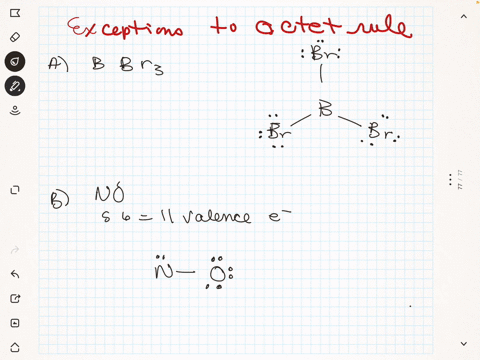 Exceptions to octet rule
A) B Br3
:Br:
B
:Br
Br:
B) NO
5 6 = 11 valence e⁻
N — O:
77 / 77